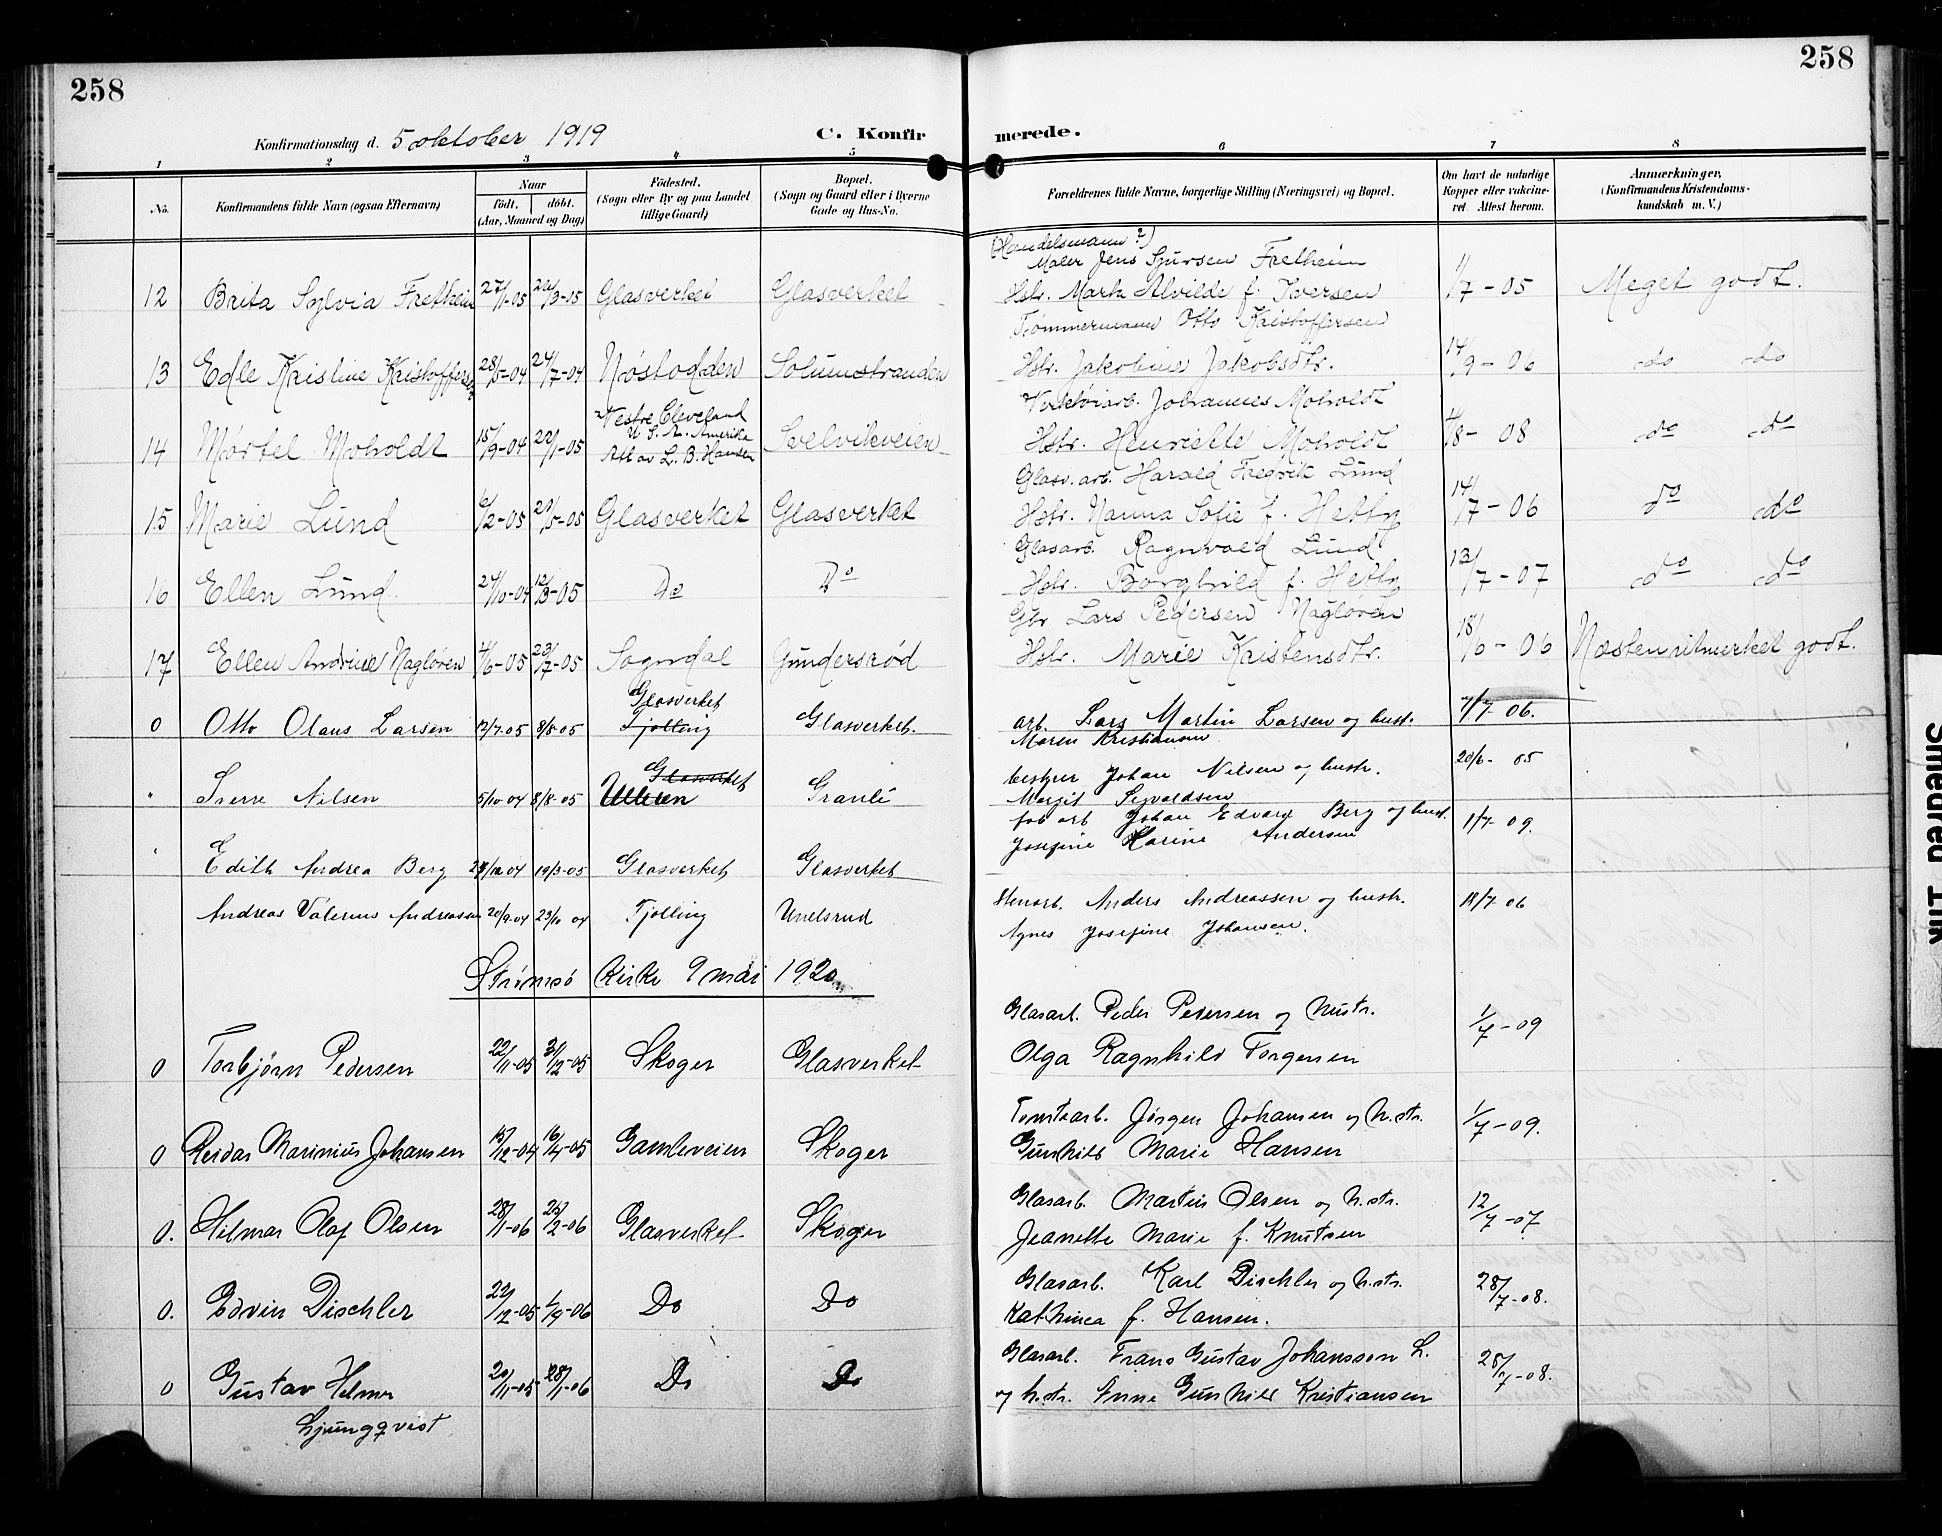 258
258
Konfirmationsdag d. 5 oktober 1919
C. Konfirmerede.
1 2 3 4 5 6 7 8
No.
Konfirmandens fulde Navn (ogsaa Efternavn)
Naar
født. døbt.
(Aar, Maaned og Dag)
Fødested.
(Sogn eller By og paa Landet
tillige Gaard)
Bopæl.
(Sogn og Gaard eller i Byerne
Gade og Hus-No.
Forældrenes fulde Navne, borgerlige Stilling (Næringsvei) og Bopæl.
Om havt de naturlige
Kopper eller vakcine-
ret. Attest herom.
Anmærkninger,
(Konfirmandens Kristendoms-
kundskab m. V.)
(Handelsmann?)
Maler Jens Sjursen Fretheim
12 Brita Sylvia Fretheim 27/1-05 26/3-05 Glasverket Glasverket Hstr. Alvilde f. Iversen 11/7-05 Meget godt.
Tømmermann Otto Kristoffersen
13 Edle Kristine Kristoffersen 28/5-04 24/7-04 Solumstranden Hstr. Jakobine Jakobsdtr. 14/9-06 do do
Johannes Moholdt
Vestre Cleveland
U. S. A. Amerika
14 Moholdt 15/9-04 22/1-05 Att av L. B. Hansen Svelvikveien Hstr. Henriette Moholdt 4/8-08 do do
Glasv. arb. Harald Fredrik Lund
15 Marie Lund 6/2-05 21/5-05 Glasverket Glasverket Hstr. Nanna Sofie f. 14/7-06 do do
Glasarb. Ragnvald Lund
16 Ellen Lund 27/10-04 12/3-05 Do Do Hstr. Borghild f. 13/7-07 do do
Gbr. Lars Pedersen Nagløren
17 Ellen Andrine Nagløren 4/6-05 23/7-05 Sogndal Gundersrød Hstr. Marie Kristensdtr. 18/6-06 Næsten utmerket godt.
Glasverket
0 Otto Olaus Larsen 12/7-05 8/8-05 Tjølling Glasverket. arb. Lars Martin Larsen og hust. 7/7-06.
Maren Kristiansen
Glasverket
" Sverre Nilsen 5/10-04 8/8-05 Ulleren Granli bestyrer Johan Nilsen og hustr. 20/6-05
Margit Sevaldsen
fab arb Johan Edvard Berg og hust. 1/7-09.
Josefine Karine Andersen
" Edith Andrea Berg 19/3-05 Glasverket Glasverket
Andreas Valerius Andreassen 20/9-04 23/10 04 Tjølling Stenarb. Anders Andreassen og hustr. 18/7 06
Agnes Josefine Johansen.
Strømsø Kirke 9 mai 1920
Glasarb. Peder Pedersen og hustr.
0 Torbjørn Pedersen 22/11-05 31/12-05 Skoger Glasverket Olga Ragnhild Torgersen 1/7-09
Tomtearb. Jørgen Johansen og h.str.
0 Reidar Marinius Johansen 15/12-04 16/4-05 Gamleveien Skoger Gunhild Marie Hansen 1/7-09.
Glasarb. Martin Olsen og h.str.
0. Hilmar Olaf Olsen 28/1-06 25/2-06 Glasverket Skoger Jeanette Marie f. Knutsen 12/7-07
Glasarb. Karl Dischler og h.str.
0. Edvin Dischler 22/12-05 1/4-06 Do Do Kathinca f. Hansen. 28/7-08.
Glasarb. Frans Gustav Johansson L.
0 Gustav Helmer 20/11-05 28/1-06 Do Do og h.str. Anne Gunhild Kristiansen 28/7-08.
Ljungqvist
Smedrud Trik